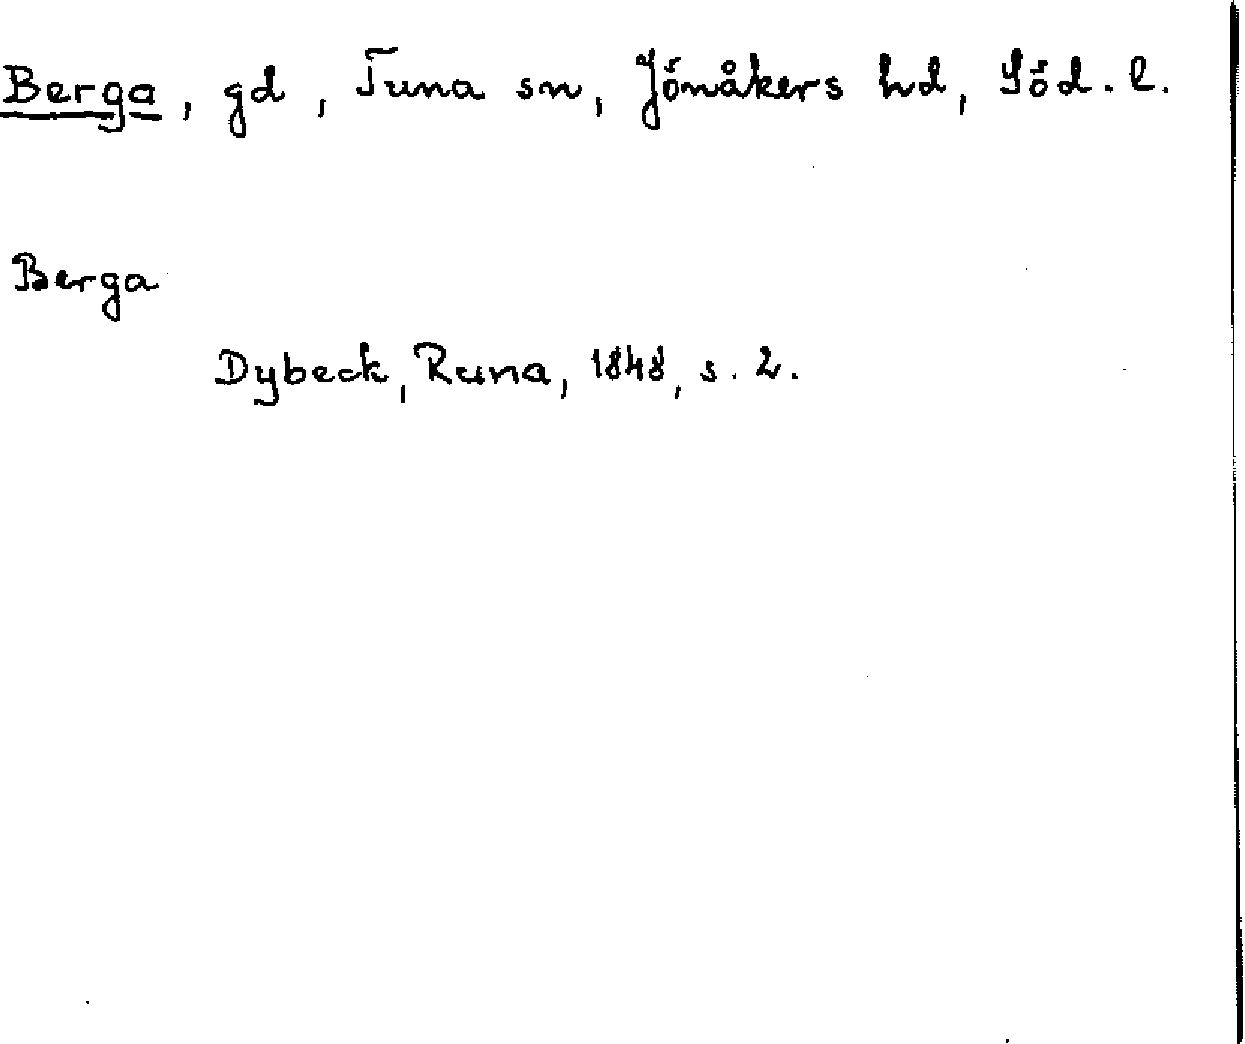 Berga, gd, Tuna sn, Jönåkers hd, Söd. l.
Berga
Dybeck, Runa, 1848, s. 2.